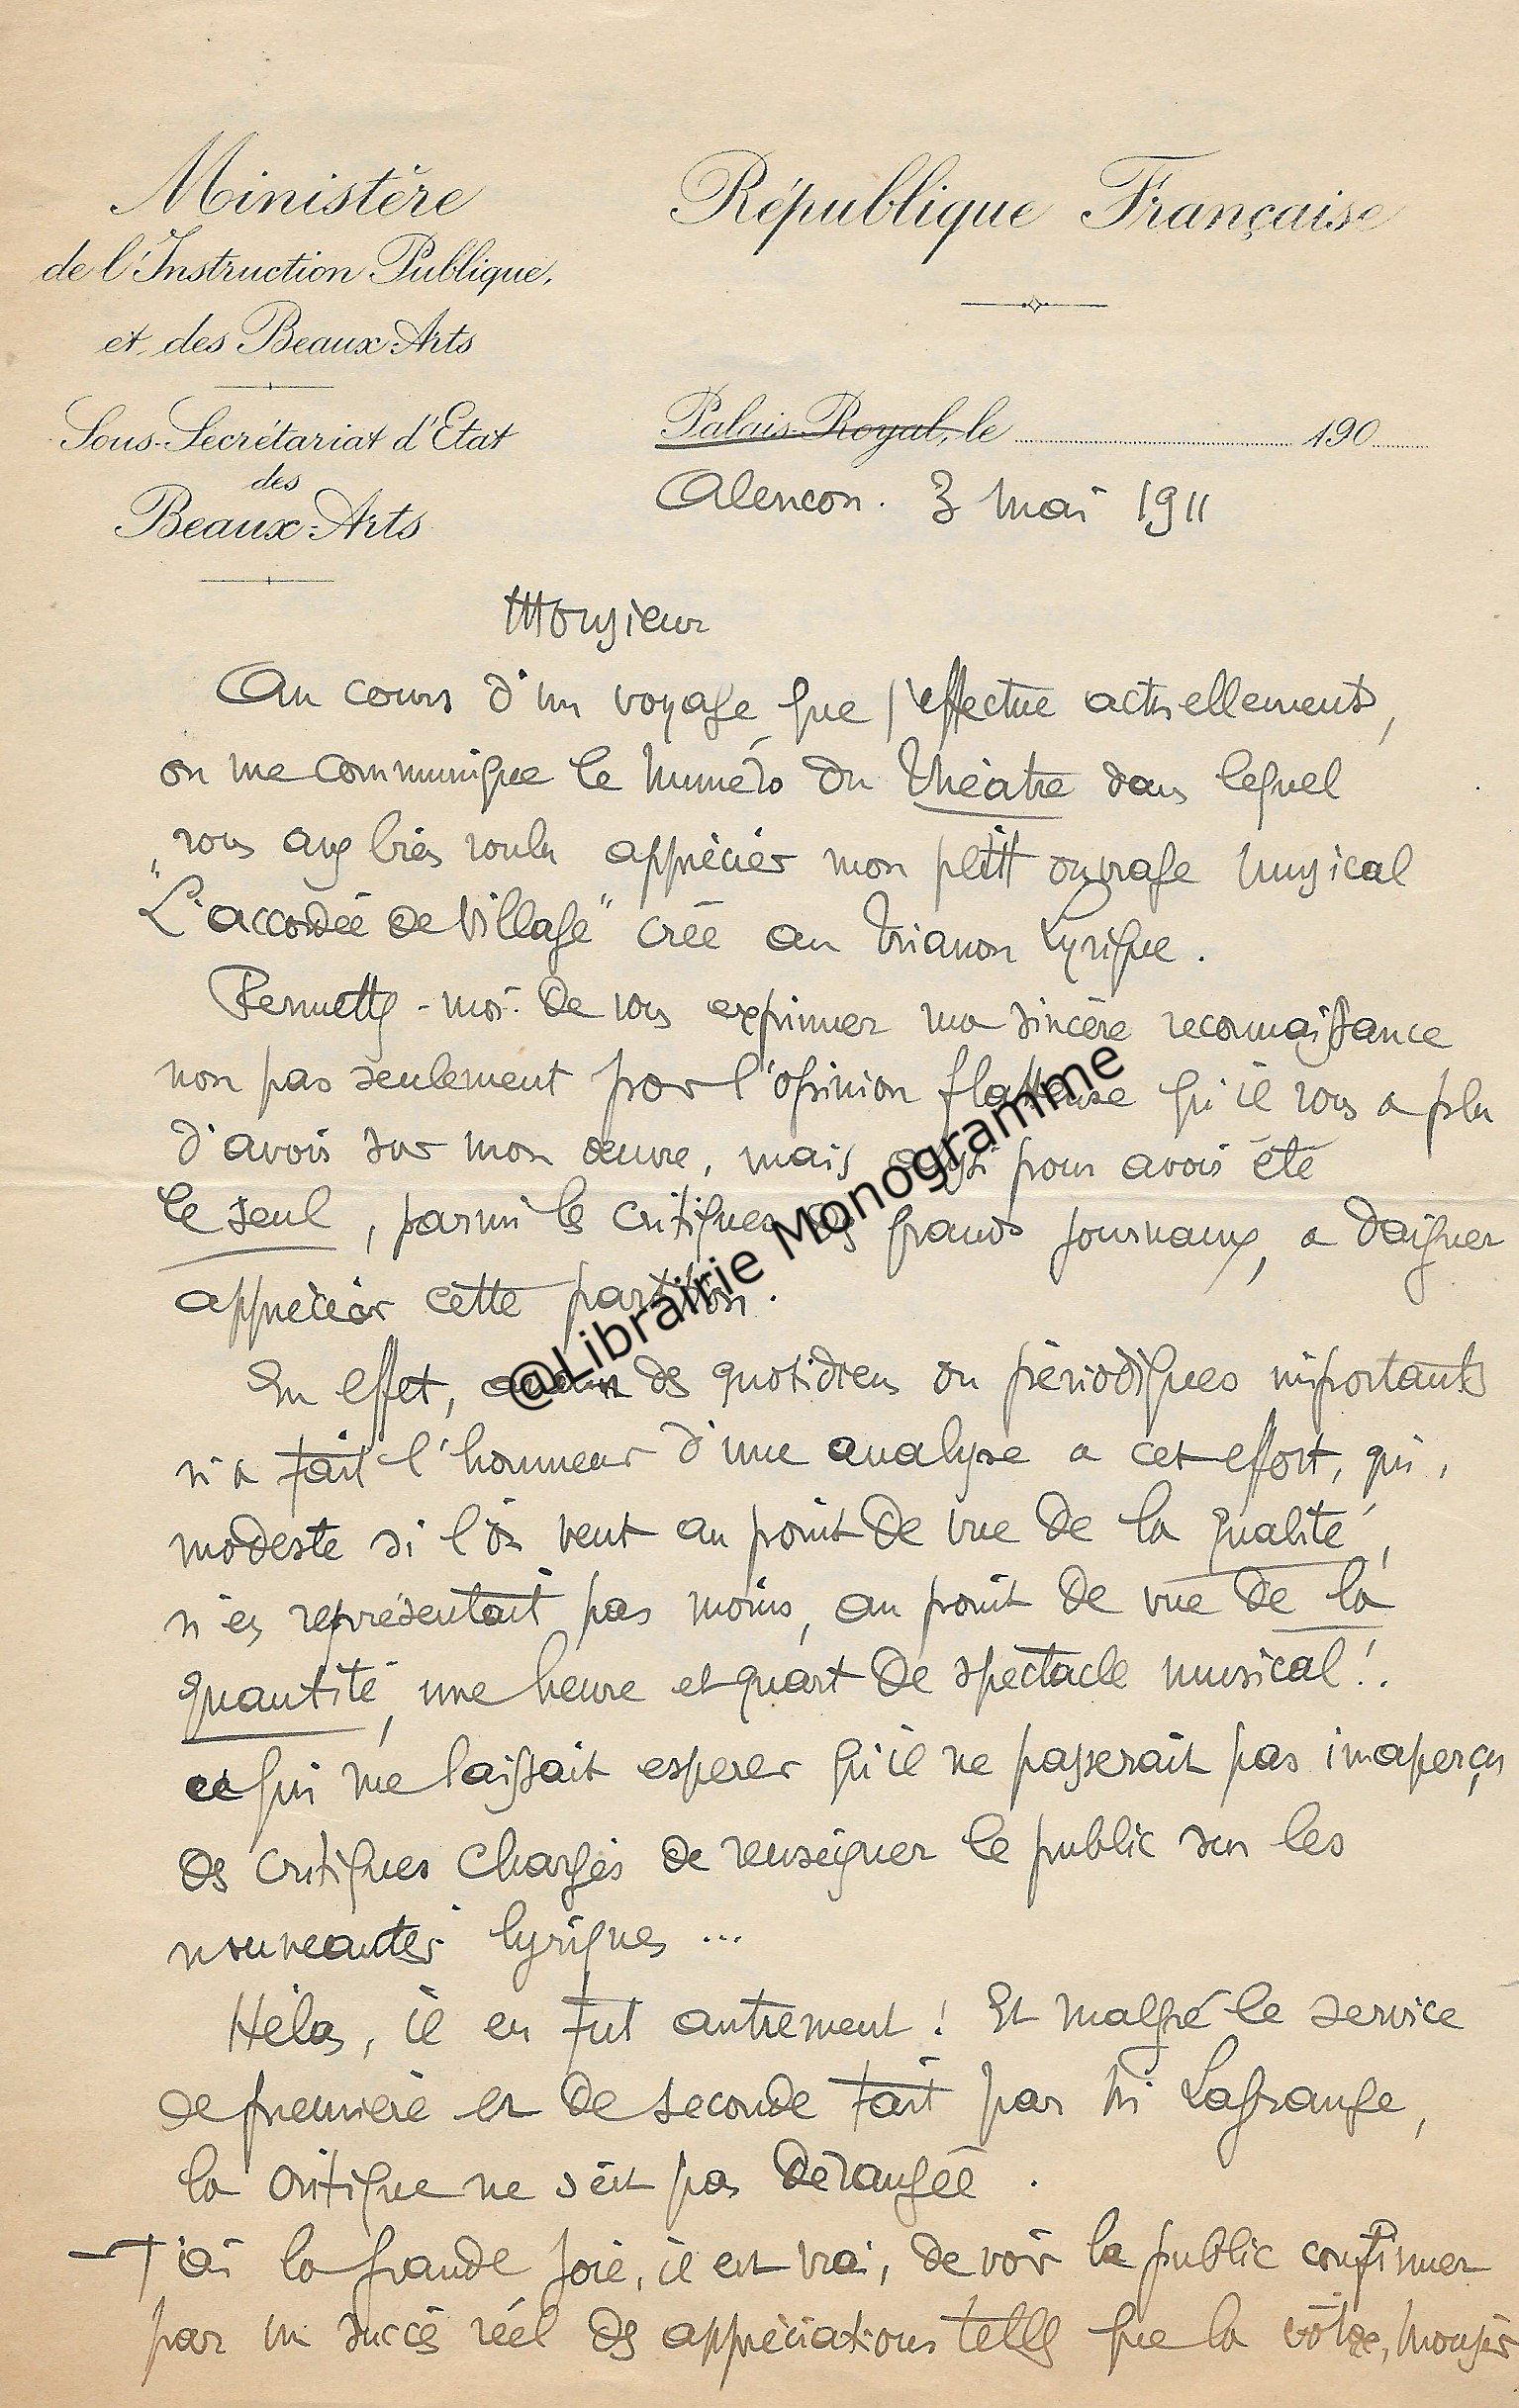 Ministère
de l'Instruction Publique,
et des Beaux-Arts
Sous-Secrétariat d'Etat
des
Beaux-Arts
République Française
Palais-Royal, le 190
Alencon. 3 Mai 1911
Monsieur
Au cours d'un voyage que j'effectue actuellement,
on me communique le numéro du Théatre dans lequel
vous avez bien voulu apprécier mon petit ouvrage musical
"L'accordée de Village" créé au Trianon Lyrique.
Permettez-moi de vous exprimer ma sincère reconnaissance
non pas seulement pour l'opinion flatteuse qu'il vous a plu
d'avoir sur mon œuvre, mais aussi pour avoir été
le seul, parmi les critiques des grands journaux, a daigner
apprécier cette partition.
En effet, aucun des quotidiens ou périodiques importants
n'a fait l'honneur d'une analyse a cet effort, qui,
modeste si l'on veut au point de vue de la qualité,
n'en représentait pas moins, au point de vue de la
quantité, une heure et quart de spectacle musical!.
ce qui me laissait esperer qu'il ne passerait pas inaperçu
des critiques chargés de renseigner le public sur les
nouveautés lyriques ...
Hélas, il en fut autrement! Et malgré le service
de première et de seconde fait par Mr Lagrange,
la critique ne s'est pas dérangée.
— J'ai la grande joie, il est vrai, de voir le public confirmer
par un succès réel des appréciations telles que la vôtre, Monsieur
@Librairie Monogramme